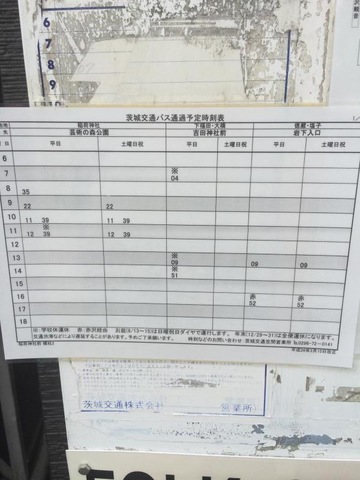 6
7
8
9
10
茨城交通バス通過予定時刻表
稲荷神社 下福田・大橋 徳蔵・塩子
芸術の森公園 吉田神社前 岩下入口
平日 土曜日祝 平日 土曜日祝 平日 土曜日祝
6
7 ※
04
8 35
9 22 22
10 11 39 11 39
11 ※
12 39 12 39
12
13 ※
09 09 09
14 ※
51
15
16 赤 赤
52 52
17
18
※:学校休運休 赤:赤沢経由 お盆(8/13~15)は日曜祝日ダイヤで運行します。 年末(12/29~31)は全便運休になります。
交通渋滞などにより遅延することがあります。予めご了承願います。 時刻などのお問い合わせ 茨城交通笠間営業所 ℡0296-72-0141
茨城交通株式会社 営業所